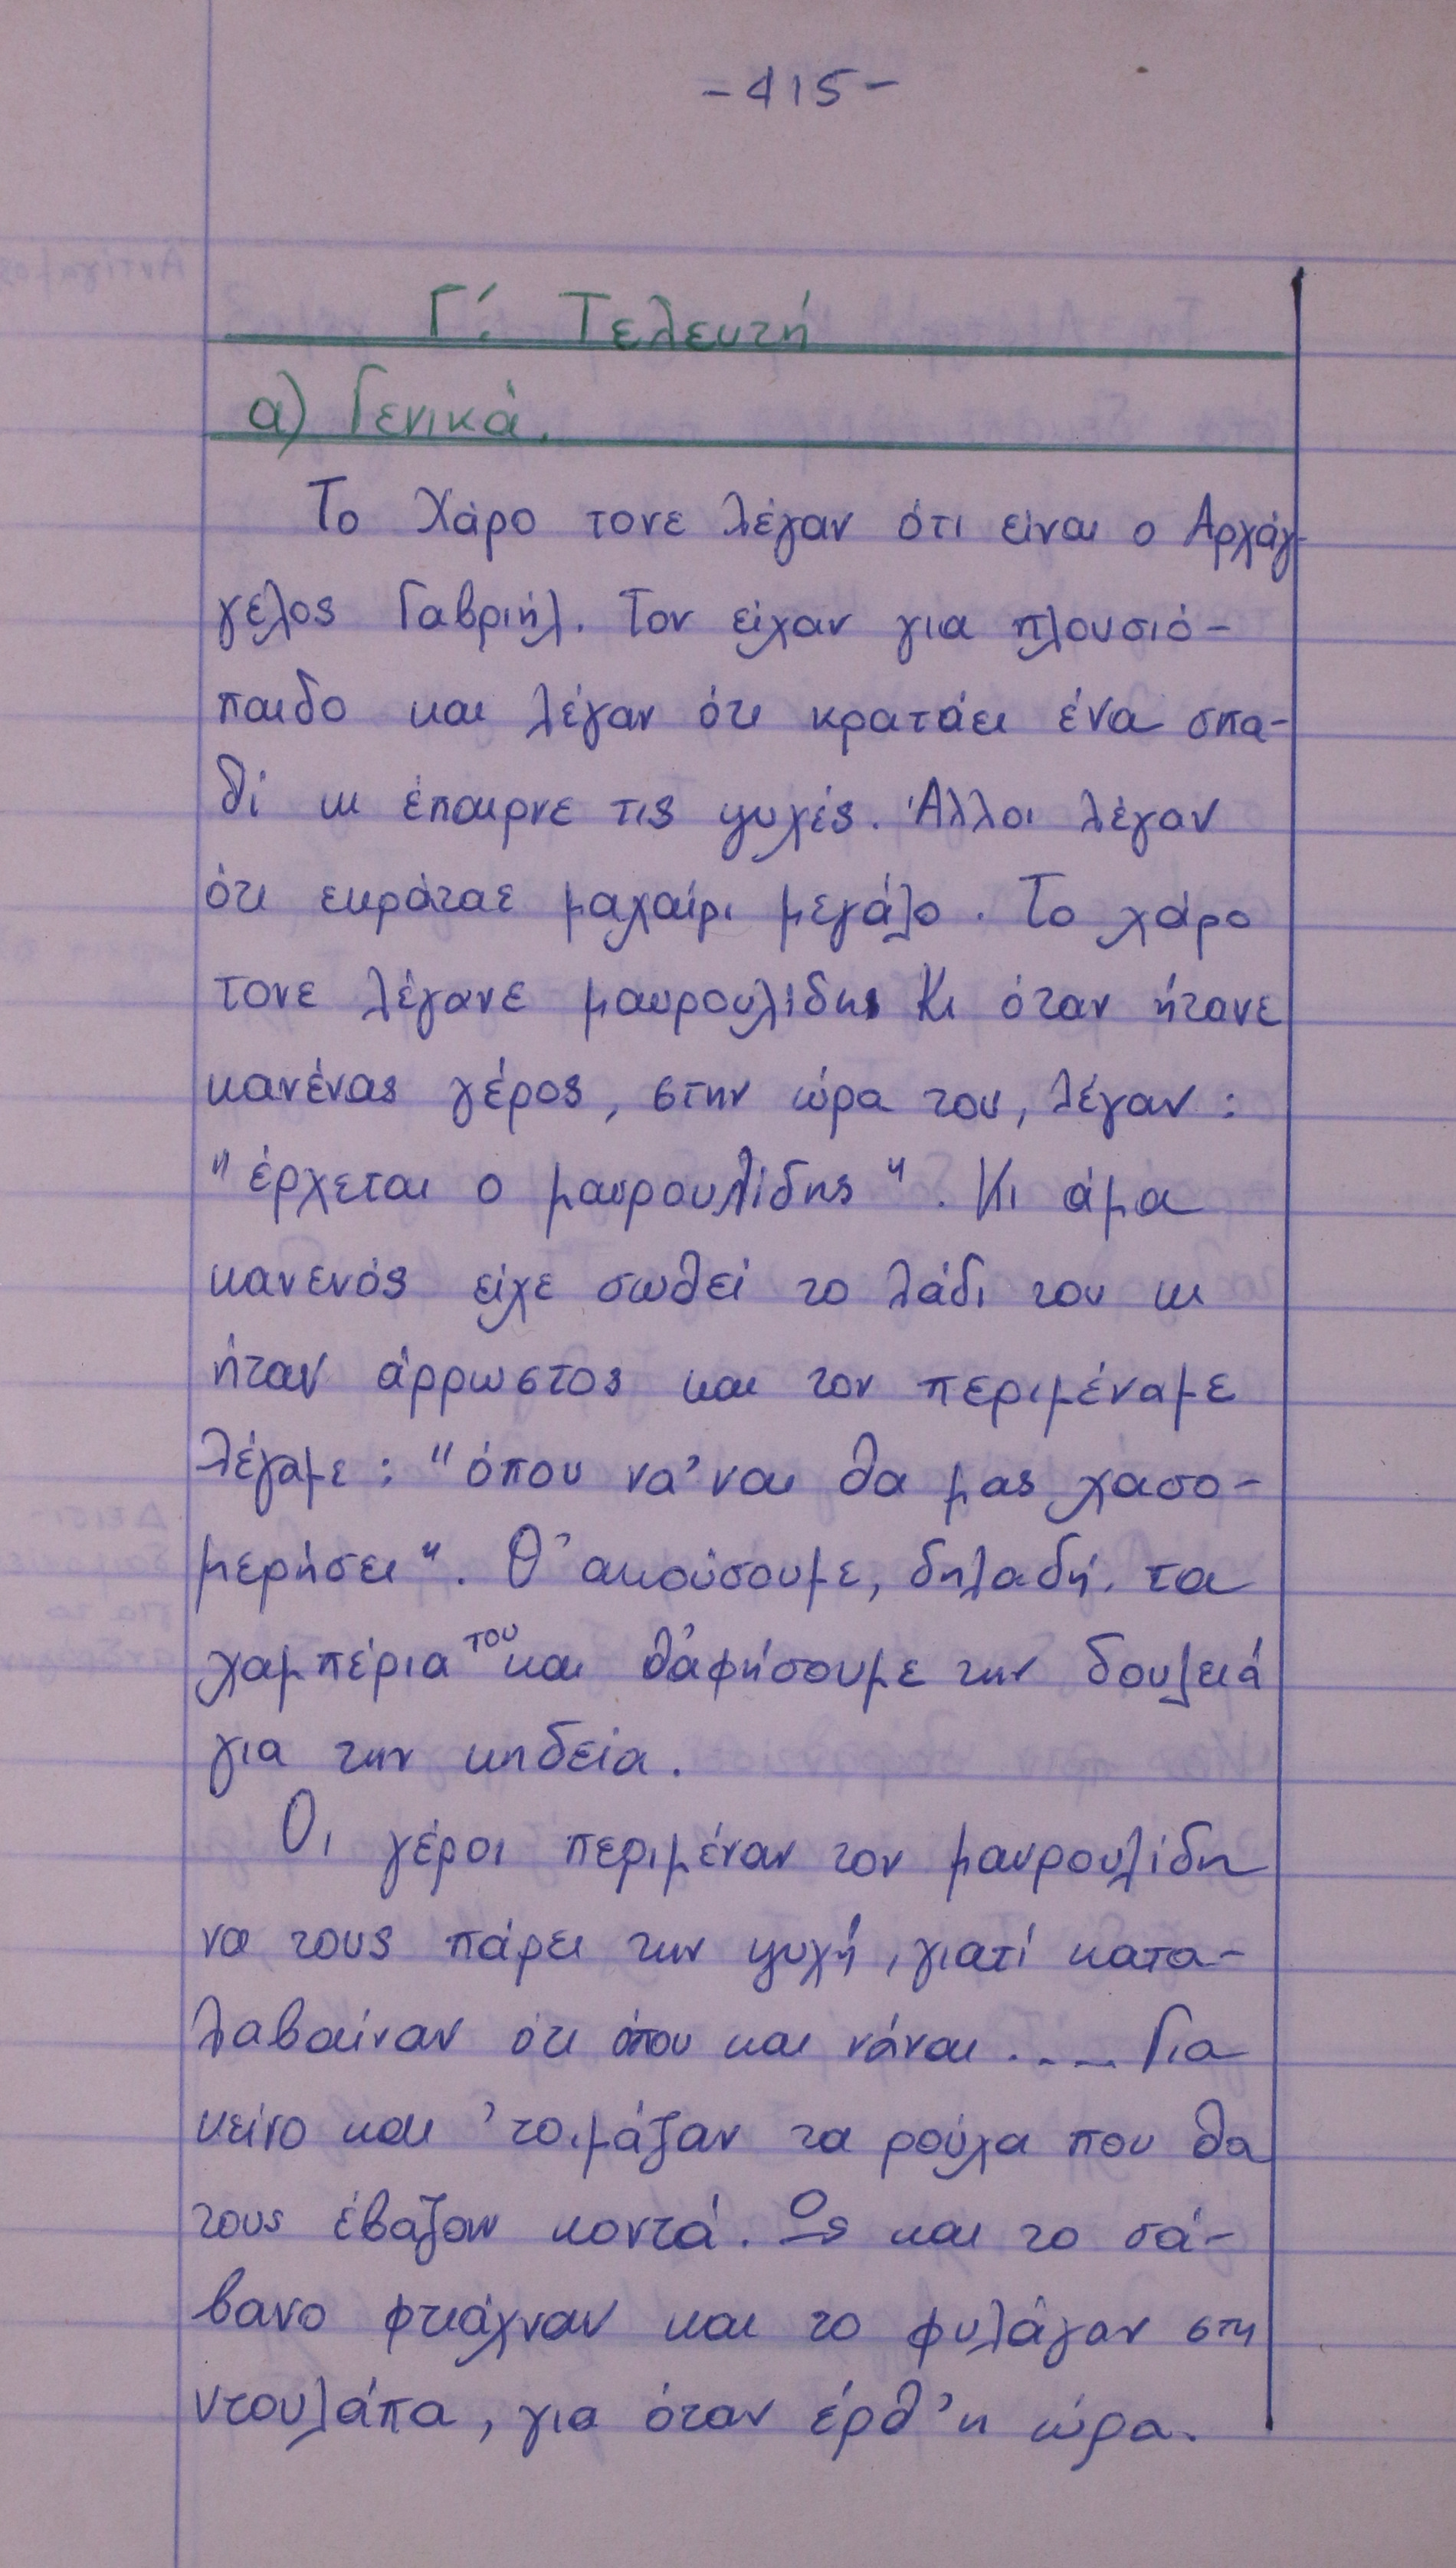 -415-
Γ΄. Τελευτή
α) Γενικά.
Το Χάρο τονε λέγαν ότι είναι ο Αρχάγ-
γελος Γαβριήλ. Τον είχαν για πλουσιό-
παιδο και λέγαν ότι κρατάει ένα σπα-
θί κι έπαιρνε τις ψυχές. Άλλοι λέγαν
ότι εκράταε μαχαίρι μεγάλο. Το χάρο
τονε λέγανε μαυρουλίδη. Κι όταν ήτανε
κανένας γέρος, στην ώρα του, λέγαν:
"έρχεται ο μαυρουλίδης". Κι άμα
κανενός είχε σωθεί το λάδι του κι
ήταν άρρωστος και τον περιμέναμε
λέγαμε: "όπου να'ναι θα μας χασο-
μερήσει". Θ' ακούσουμε, δηλαδή, τα
χαμπέρια του και θ'αφήσουμε την δουλειά
για την κηδεία.
Οι γέροι περιμέναν τον μαυρουλίδη
να τους πάρει την ψυχή, γιατί κατα-
λαβαίναν ότι όπου και νάναι.... Για
κείνο και 'τοιμάζαν τα ρούχα που θα
τους έβαζαν κοντά. Ως και το σά-
βανο φτιάχναν και το φυλάγαν στη
ντουλάπα, για όταν έρθ' η ώρα.